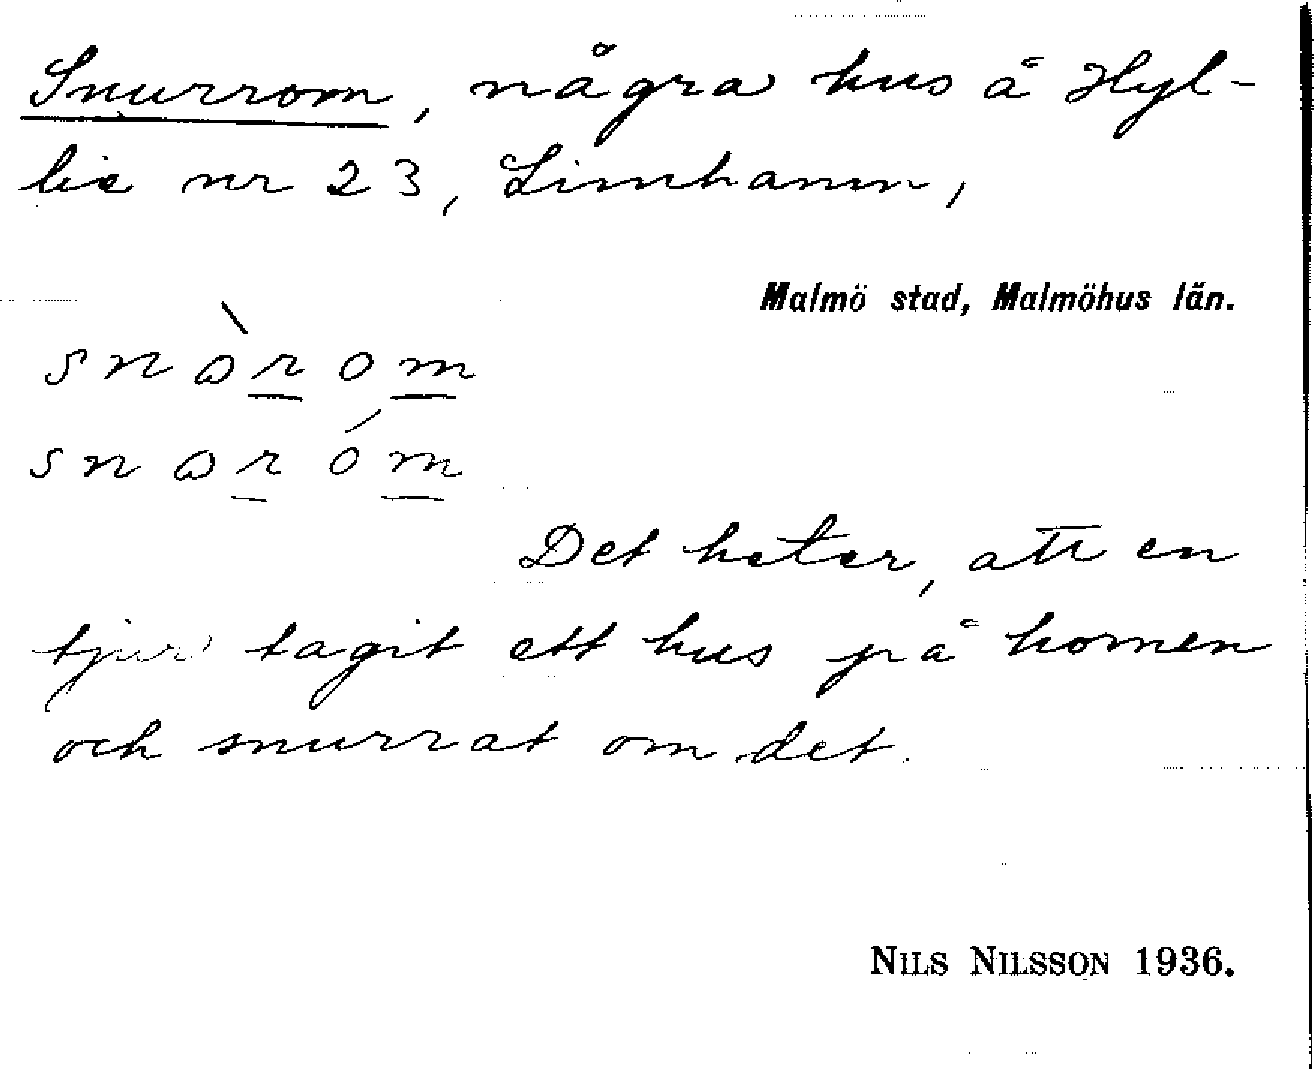 Snurrom, några hus å Hyl-
lie nr 23, Limhamn,
Malmö stad, Malmöhus län.
snòrom
snoróm
Det heter, att en
tjur tagit ett hus på hornen
och snurrat om det.
NILS NILSSON 1936.